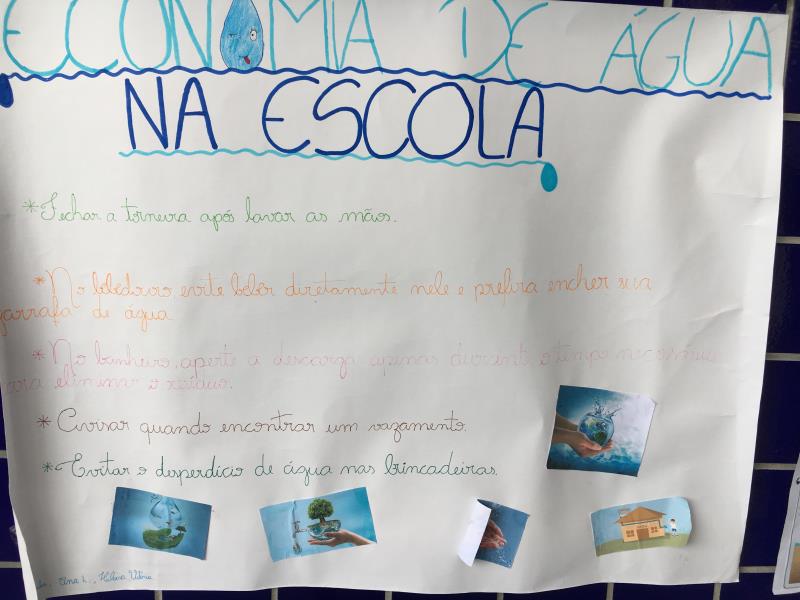 ECONOMIA DE ÁGUA
NA ESCOLA
*Fechar a torneira após lavar as mãos.
*No bebedouro evite beber diretamente nele e prefira encher sua
garrafa de água
*No banheiro, aperte a descarga apenas durant o tempo necessário
ara eliminar o resíduo.
*Avisar quando encontrar um vazamento.
*Evitar o desperdício de água nas brincadeiras.
Ana L., Vitória